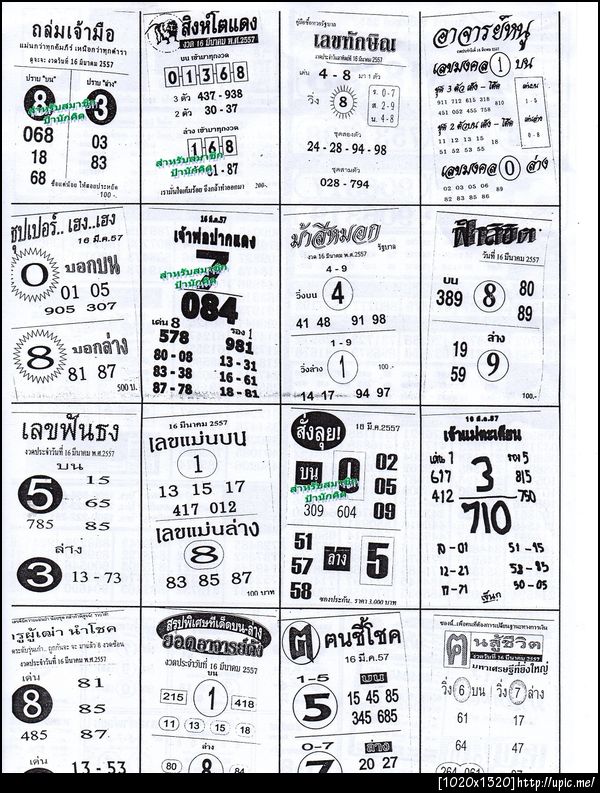 ถล่มเจ้ามือ
แม่นกว่าทุกคัมภีร์ เหนือกว่าทุกตำรา
งวดวันที่ 16 มีนาคม 2557
ปราบ "บน"
ปราบ "ล่าง"
8
3
สำหรับสมาชิก
ป๋านักคิด
068
03
18
83
68
83
100.-
สิงห์โตแดง
งวด 16 มีนาคม พ.ศ.2557
บน เข้ามาทุกงวด
0 1 3 6 8
3 ตัว 437 - 938
2 ตัว 30 - 37
ล่าง เข้ามาทุกงวด
1 6 8
สำหรับสมาชิก
ป๋านักคิด
1-87
200.-
เลขทักษิณ
เด่น 4 - 8 มา 1 ตัว
วิ่ง 8
ร. 0-7
ส. 2-9
น. 4-8
ชุดสองตัว
24 - 28 - 94 - 98
ชุดสามตัว
028 - 794
อาจารย์หนู
เลขมงคล 1 บน
ชุด 3 ตัว เต็ง - โต๊ด
911 712 615 318
451 052 455 758
ชุด 2 ตัวบน เต็ง - โต๊ด
11 12 13 15
51 52 53 55
เลขมงคล 0 ล่าง
02 03 05 06 89
82 83 85 86
ซุปเปอร์.. เฮง..เฮง
16 มี.ค.57
0 บอกบน
01 05
905 307
8 บอกล่าง
81 87
500 บ.
16 มี.ค.57
เจ้าพ่อปากแดง
7
สำหรับสมาชิก
ป๋านักคิด
084
เด่น 8
รอง 1
578 981
80-08 13-31
83-38 16-61
87-78 18-81
ม้าสีหมอก
งวด 16 มีนาคม 2557
รัฐบาล
4 - 9
วิ่งบน 4
41 48 91 98
1 - 9
วิ่งล่าง 1
14 17 94 97
100.-
ฟ้าลิขิต
วันที่ 16 มีนาคม 2557
บน
389 8 80
89
ล่าง
19
59 9
100.-
เลขฟันธง
งวดประจำวันที่ 16 มีนาคม พ.ศ.2557
บน
5
15
65
785 85
ล่าง
3 13 - 73
16 มีนาคม 2557
เลขแม่นบน
1
13 15 17
417 012
เลขแม่นล่าง
8
83 85 87
100 บาท
สั่งลุย!
16 มี.ค.2557
บน 0
02
05
09
สำหรับสมาชิก
ป๋านักคิด
309 604
51
57
58
ล่าง 5
ซองประกัน. ราคา 3,000 บาท
16 มี.ค.57
เจ้าแม่ตะเคียน
เด่น 1
รอง 5
617 3 815
412 750
710
10-01 51-15
12-21
17-71 50-05
ครูผู้เฒ่า นำโชค
งวดประจำวันที่ 16 มีนาคม พ.ศ.2557
เด่น
8
81
85
485 87
เด่น
13 - 53
สรุปพิเศษทีเด็ดบน-ล่าง
ยอดอาจารย์ดัง
งวดประจำวันที่ 16 มีนาคม 2557
บน
215 1 418
11 13 15 18
ล่าง
8
ฅ ฅนชี้โชค
16 มี.ค.57
1-5
5
บน
15 45 85
345 685
0-7
7
ล่าง
20 27
ฅนสู้ชีวิต
งวดวันที่ 16 มีนาคม 2557
มหาเศรษฐีที่ยิ่งใหญ่
วิ่ง 6 บน
วิ่ง 7 ล่าง
61 17
64 47
264 061
[1020x1320]http://upic.me/